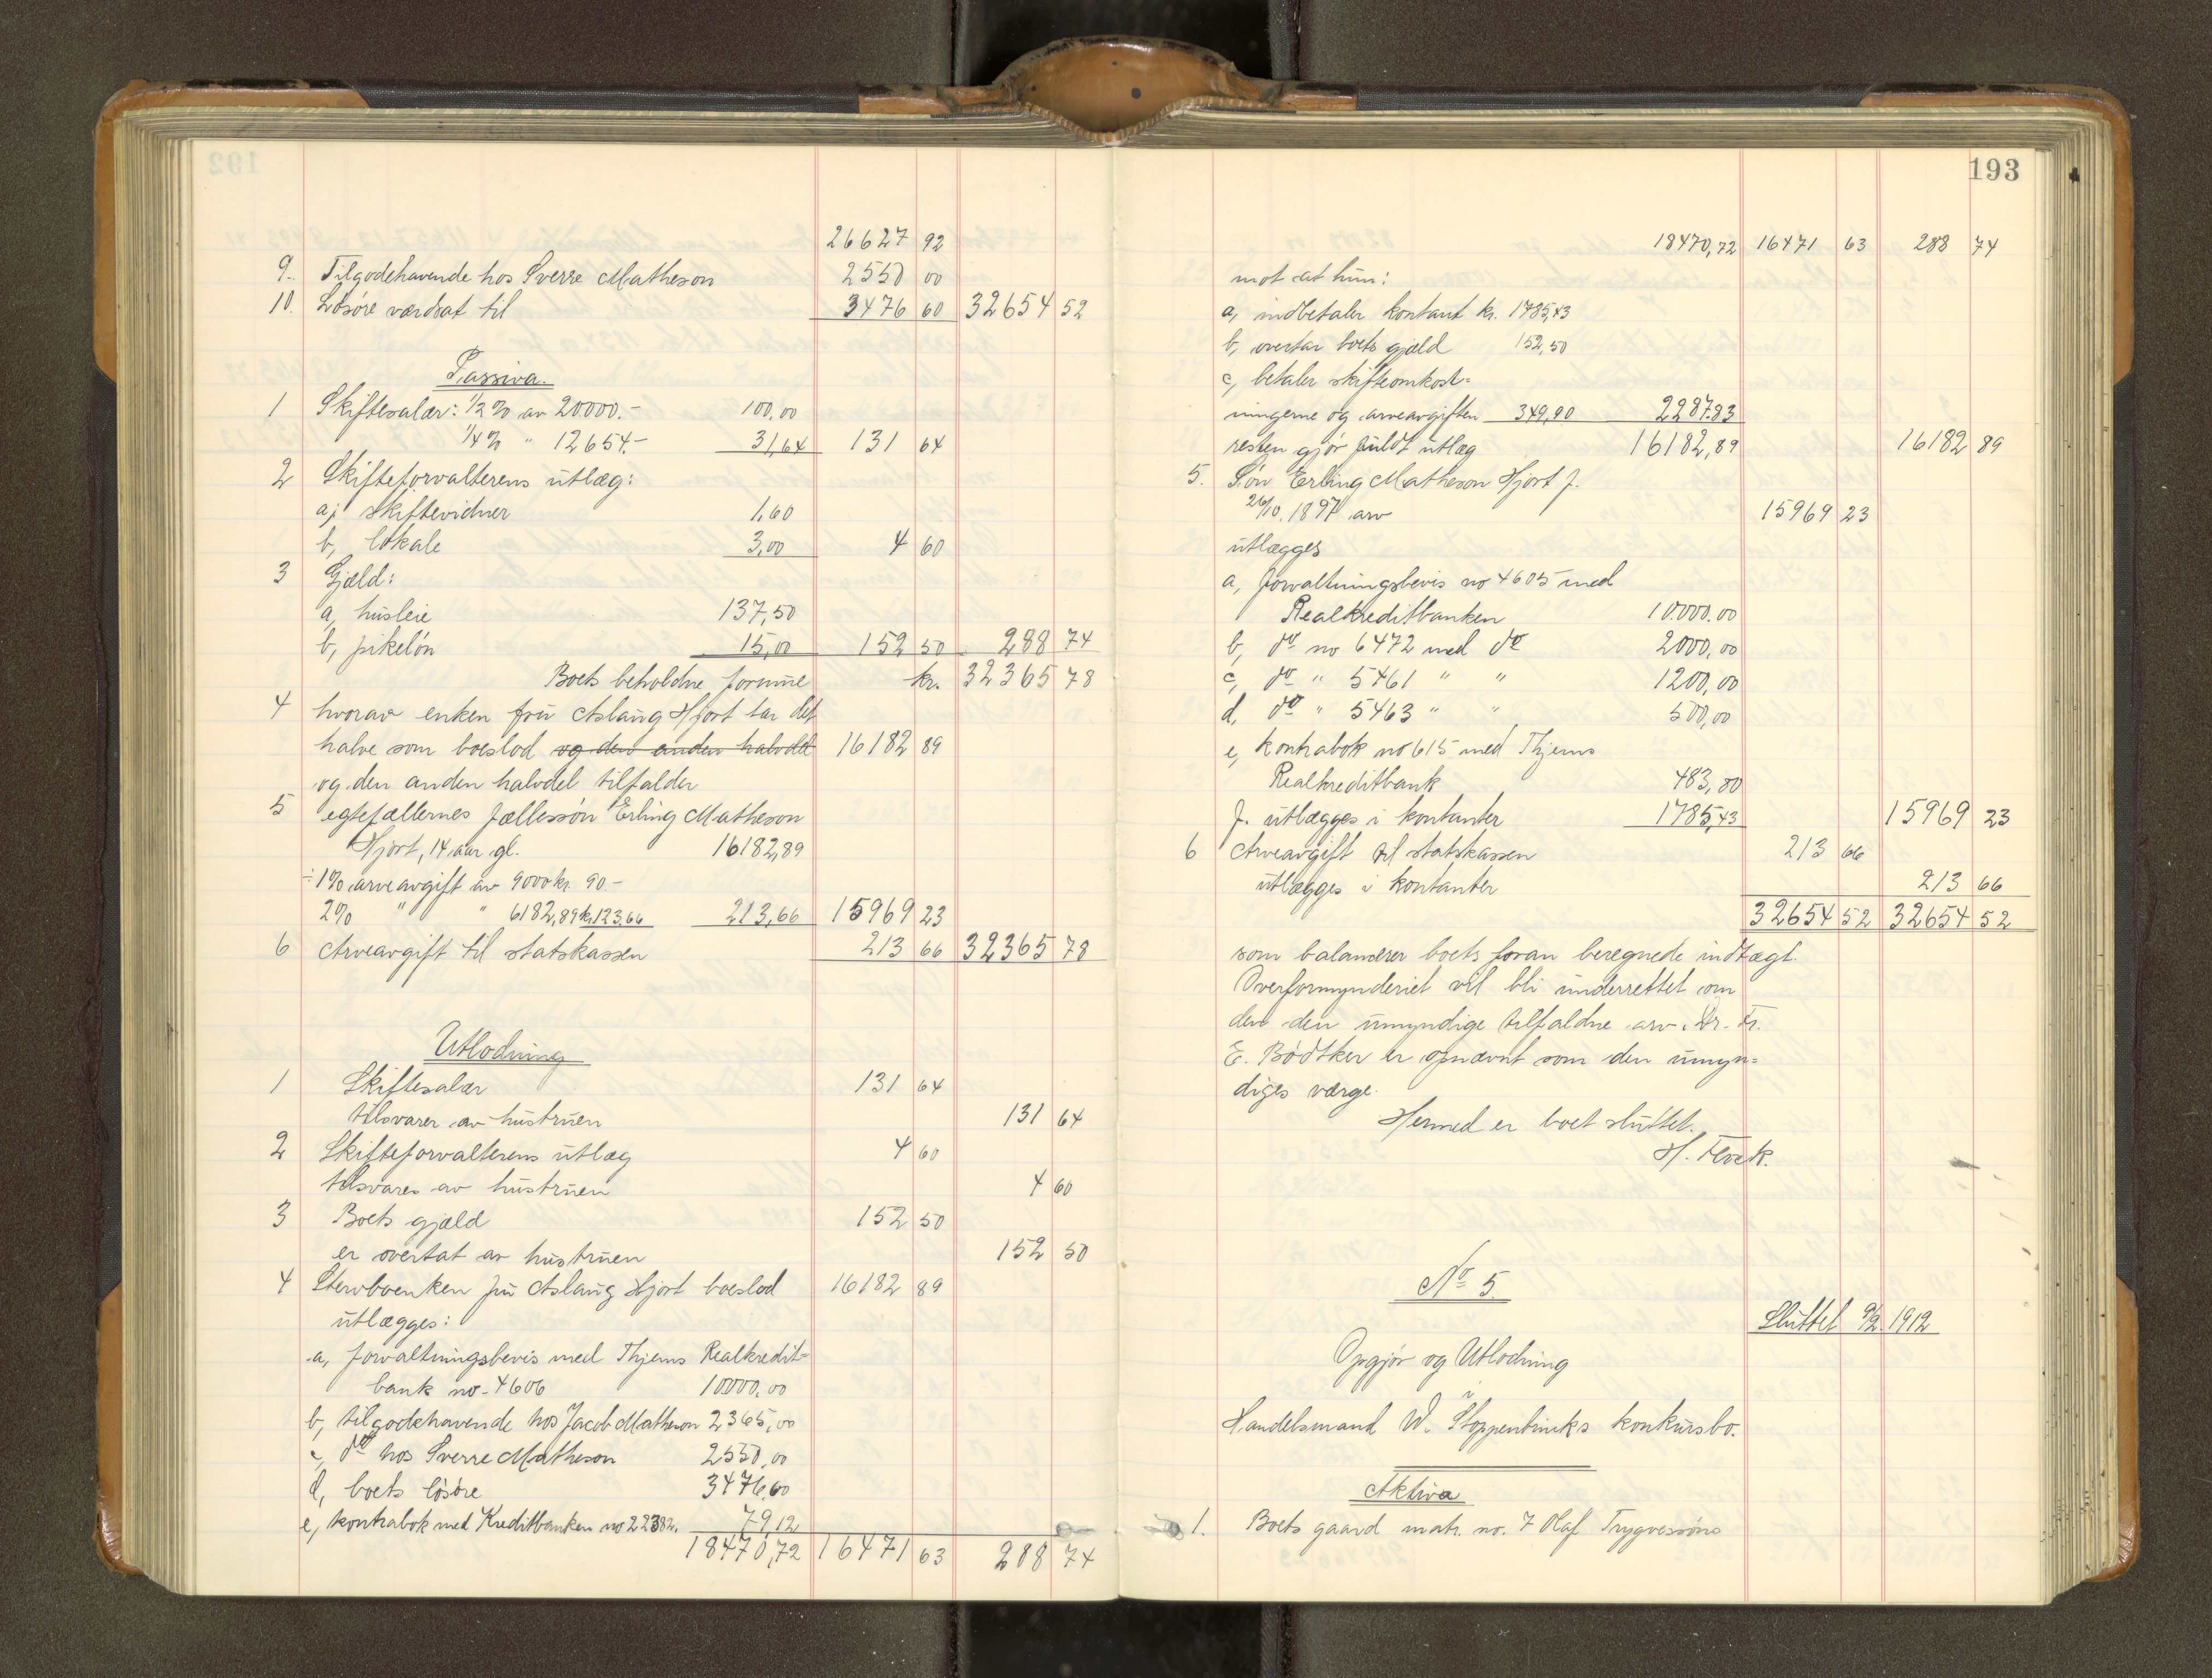 26627 92
9. Tilgodehavende hos Sverre Matheson 2550 00
10. Løsøre værdsat til 3476 60 32654 52
Passiva.
1 Skiftesalær: 1/2 % av 20000.- 100,00
1/4 % " 12654.- 31,64 131 64
2 Skifteforvalterens utlæg:
a, skiftevidner 1,60
b, lokale 3,00 4 60
3 Gjæld:
a, husleie 137,50
b, pikeløn 15,00 152 50 288 74
Boets beholdne formue kr. 32365 78
4 hvorav enken fru Aslaug Hjort tar det
halve som boeslod og den anden halvdel 16182 89
og den anden halvdel tilfalder
5 egtefællernes fællessøn Erling Matheson
Hjort, 14 aar gl. 16182,89
÷ 1% arveavgift av 9000 kr. 90.-
2% " " 6182,89 kr. 123,66 213,66 15969 23
6 Arveavgift til statskassen 213 66 32365 78
Utlodning
1 Skiftesalær 131 64
tilsvarer av hustruen 131 64
2 Skifteforvalterens utlæg 4 60
tilsvares av hustruen 4 60
3 Boets gjæld 152 50
er overtat av hustruen 152 50
4 Stervboenken fru Aslaug Hjort boeslod 16182 89
utlægges:
a, forvaltningsbevis med Thjems Realkredit=
bank no. 4606 10000,00
b, tilgodehavende hos Jacob Matheson 2365,00
c, do hos Sverre Matheson 2550,00
d, boets løsøre 3476,60
e, kontrabok med Kreditbanken no 22382. 79,12
18470,72 16471 63 288 74
193
18470,72 16471 63 288 74
mot at hun:
a, indbetaler kontant kr. 1785,43
b, overtar boets gjæld 152,50
c, betaler skifteomkost=
ningerne og arveavgiften 349,90 2287.83
resten gjør fuldt utlæg 16182,89 16182 89
5. Søn Erling Matheson Hjort f.
26/10. 1897 arv 15969 23
utlægges
a, forvaltningsbevis no 4605 med
Realkreditbanken 10.000.00
b, do no 6472 med do 2000,00
c, do " 5461 " " 1200,00
d, do " 5463 " " 500,00
e, kontrabok no 615 med Thjems
Realkreditbank 483,80
f. utlægges i kontanter 1785,43 15969 23
6 Arveavgift til statskassen 213 66
utlægges i kontanter 213 66
32654 52 32654 52
som balancerer boets foran beregnede indtægt.
Overformynderiet vil bli underrettet om
den den umyndige tilfaldne arv. Dr. Fr.
E. Bødtker er opnævnt som den umyn=
diges værge.
Hermed er boet sluttet.
No 5
Sluttet 9/2 1912
Opgjør og Utlodning
i
Handelsmand W. Stoppenbrincks konkursbo.
Aktiva
1. Boets gaard matr. no. 7 Olaf Trygvessøns